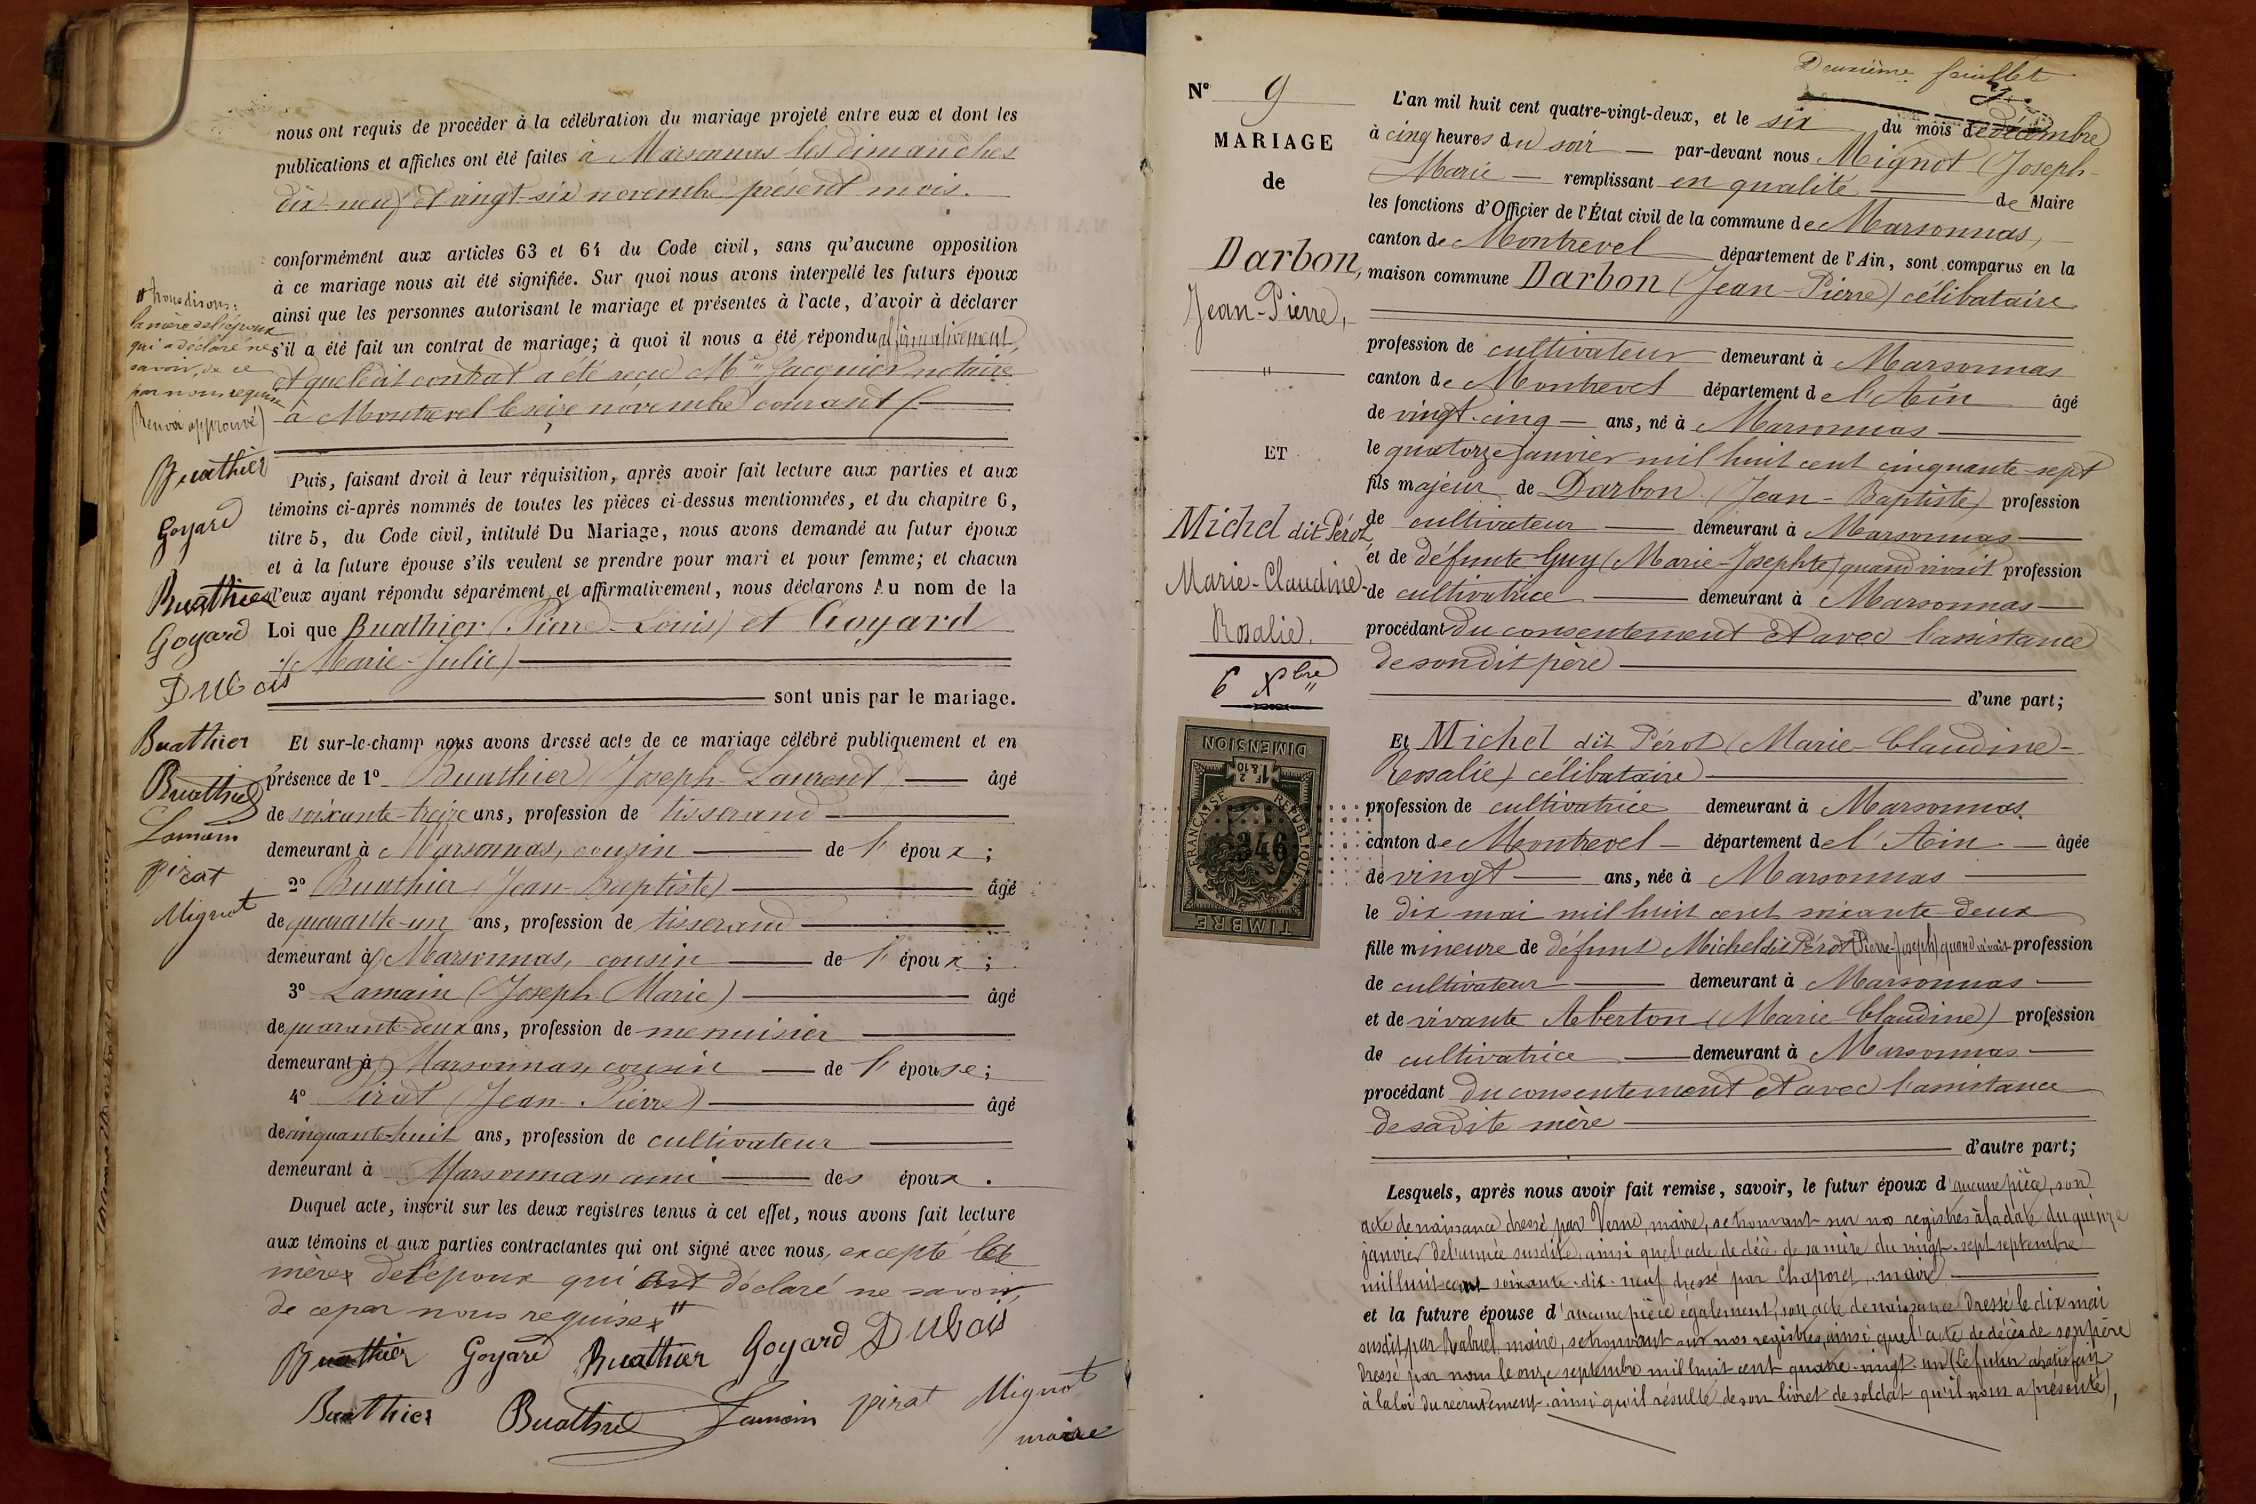 nous ont requis de procéder à la célébration du mariage projeté entre eux et dont les
publications et affiches ont été faites à Marsonnas les dimanches
dix-neuf et vingt-six novembre présent mois.
conformément aux articles 63 et 64 du Code civil, sans qu'aucune opposition
à ce mariage nous ait été signifiée. Sur quoi nous avons interpellé les futurs époux
ainsi que les personnes autorisant le mariage et présentes à l'acte, d'avoir à déclarer
s'il a été fait un contrat de mariage; à quoi il nous a été répondu affirmativement,
et que ledit contrat a été reçu Me Jacquier notaire
à Montrevel le seize novembre courant
Puis, faisant droit à leur réquisition, après avoir fait lecture aux parties et aux
témoins ci-après nommés de toutes les pièces ci-dessus mentionnées, et du chapitre 6,
titre 5, du Code civil, intitulé Du Mariage, nous avons demandé au futur époux
et à la future épouse s'ils veulent se prendre pour mari et pour femme; et chacun
d'eux ayant répondu séparément et affirmativement, nous déclarons Au nom de la
Loi que Buathier (Pierre-Louis) et Goyard
(Marie-Julie)
sont unis par le mariage.
Et sur-le-champ nous avons dressé acte de ce mariage célébré publiquement et en
présence de 1° Buathier (Joseph-Laurent) âgé
de soixante-treize ans, profession de tisserand
demeurant à Marsonnas, cousin de l'époux;
2° Buathier (Jean-Baptiste) âgé
de quarante-un ans, profession de tisserand
demeurant à Marsonnas, cousin de l'époux;
3° Lamain (Joseph Marie) âgé
de quarante-deux ans, profession de menuisier
demeurant à Marsonnas, cousin de l'épouse;
4° Pirat (Jean-Pierre) âgé
de cinquante-huit ans, profession de cultivateur
demeurant à Marsonnas ami des époux.
Duquel acte, inscrit sur les deux registres tenus à cet effet, nous avons fait lecture
aux témoins et aux parties contractantes qui ont signé avec nous, excepté les
mères de l'époux qui ont déclaré ne savoir,
de ce par nous requises
Buathier Goyard Buathier Goyard Dubois
Buathier Buathier Lamain pirat Mignot
maire
nous disons:
la mère de l'époux
qui a déclaré ne
savoir, de ce
par nous requise
(Renvoi approuvé)
Buathier
Goyard
Buathier
Goyard
Dubois
Buathier
Buathier
Lamain
pirat
Mignot
Deuxième feuillet
N° 9
MARIAGE
de
Darbon,
Jean-Pierre,
ET
Michel dit Pérot,
Marie-Claudine-
Rosalie.
6 Xbre
DIMENSION
1F 2/10
RÉPUBLIQUE FRANÇAISE
346
TIMBRE
L'an mil huit cent quatre-vingt-deux, et le six du mois de décembre
à cinq heures du soir par-devant nous Mignot (Joseph-
Marie remplissant en qualité de Maire
les fonctions d'Officier de l'État civil de la commune de Marsonnas,
canton de Montrevel département de l'Ain, sont comparus en la
maison commune Darbon (Jean-Pierre) célibataire
profession de cultivateur demeurant à Marsonnas
canton de Montrevel département de l'Ain âgé
de vingt-cinq ans, né à Marsonnas
le quatorze janvier mil huit cent cinquante-sept
fils majeur de Darbon (Jean-Baptiste) profession
de cultivateur demeurant à Marsonnas
et de défunte Guy (Marie-Josephte) quand vivait profession
de cultivatrice demeurant à Marsonnas
procédant du consentement et avec l'assistance
de son dit père
d'une part;
Et Michel dit Pérot (Marie-Claudine-
Rosalie) célibataire
profession de cultivatrice demeurant à Marsonnas
canton de Montrevel département de l'Ain âgée
de vingt ans, née à Marsonnas
le dix mai mil huit cent soixante-deux
fille mineure de défunt Michel dit Pérot (Pierre-Joseph) quand vivait profession
de cultivateur demeurant à Marsonnas
et de vivante Aberton (Marie Claudine) profession
de cultivatrice demeurant à Marsonnas
procédant du consentement et avec l'assistance
de sadite mère
d'autre part;
Lesquels, après nous avoir fait remise, savoir, le futur époux d'aucune pièce, son
acte de naissance dressé par Verne, maire, se trouvant sur nos registres à la date du quinze
janvier de l'année susdite, ainsi que l'acte de décès de sa mère du vingt-sept septembre
mil huit cent soixante-dix-neuf dressé par Chaponet, maire
et la future épouse d'aucune pièce également, son acte de naissance dressé le dix mai
susdit par Rabuel, maire, se trouvant sur nos registres, ainsi que l'acte de décès de son père
dressé par nous le onze septembre mil huit cent quatre-vingt-un (Le futur a satisfait
à la loi du recrutement ainsi qu'il résulte de son livret de soldat qu'il nous a présenté),